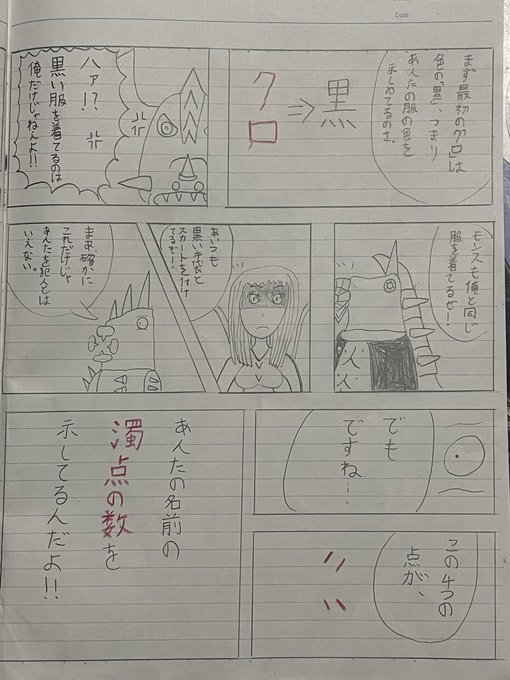 Date
まず、最初の「クロ」は
色の「黒」、つまり
あんたの服の色を
示しめてるのさ。
黒
⇒
クロ
ハァ!?
黒い服を着てるのは
俺だけじゃねぇよ!!
モンスも俺と同じ
服を着てるぜ!
あいつも
黒い手袋と
スカートを付け
てるぞ!
まあ確かに
これだけじゃ
あんたを犯人とは
いえない。
でも
ですね…
この4つの
点が、
あんたの名前の
濁点の数を
示してるんだよ!!